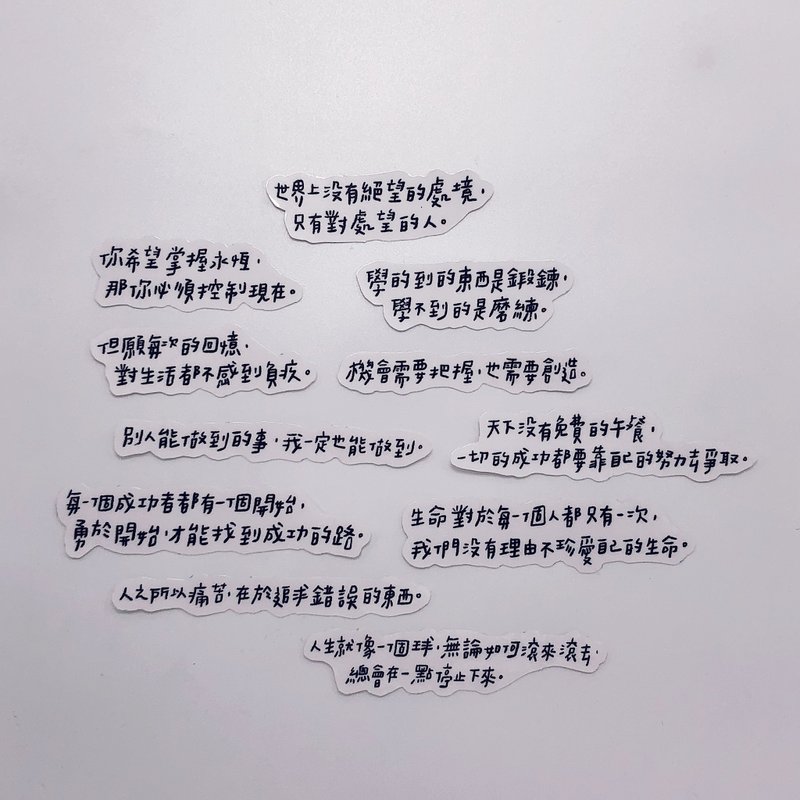 世界上没有絕望的處境，
只有對處望的人。
你希望掌握永恆，
那你必須控制現在。
學的到的東西是鍛鍊，
學不到的是磨練。
但願每次的回憶，
對生活都不感到負疚。
機會需要把握，也需要創造。
別人能做到的事，我一定也能做到。
天下没有免費的午餐，
一切的成功都要靠自己的努力去爭取。
每一個成功者都有一個開始，
勇於開始，才能找到成功的路。
生命對於每一個人都只有一次，
我們没有理由不珍愛自己的生命。
人之所以痛苦，在於追求錯誤的東西。
人生就像一個球，無論如何滾來滾去，
總會在一點停止下來。